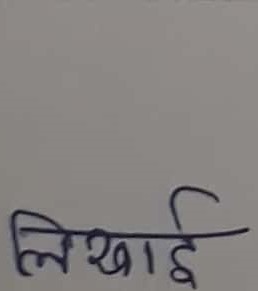 लिखाई